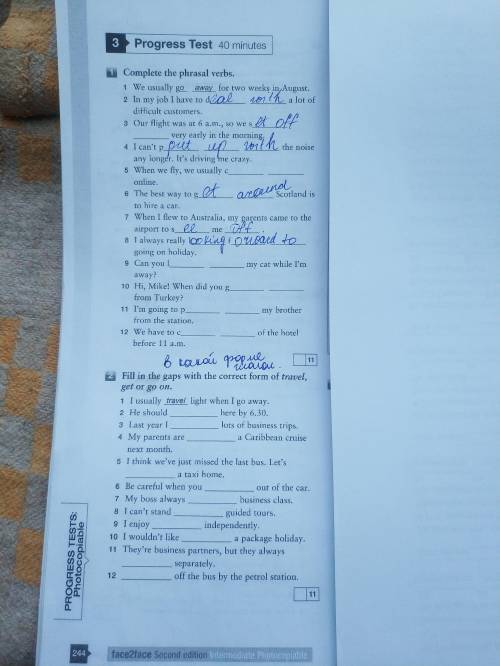 3 Progress Test 40 minutes
1 Complete the phrasal verbs.
1 We usually go away for two weeks in August.
2 In my job I have to deal with a lot of
difficult customers.
3 Our flight was at 6 a.m., so we set off
________ very early in the morning.
4 I can't put up with the noise
any longer. It's driving me crazy.
5 When we fly, we usually c________ ________
online.
6 The best way to get around Scotland is
to hire a car.
7 When I flew to Australia, my parents came to the
airport to see me off.
8 I always really looking forward to
going on holiday.
9 Can you l________ ________ my cat while I'm
away?
10 Hi, Mike! When did you g________ ________
from Turkey?
11 I'm going to p________ ________ my brother
from the station.
12 We have to c________ ________ of the hotel
before 11 a.m.
11
в какой форме
глагол.
2 Fill in the gaps with the correct form of travel,
get or go on.
1 I usually travel light when I go away.
2 He should ________ here by 6.30.
3 Last year I ________ lots of business trips.
4 My parents are ________ a Caribbean cruise
next month.
5 I think we've just missed the last bus. Let's
________ a taxi home.
6 Be careful when you ________ out of the car.
7 My boss always ________ business class.
8 I can't stand ________ guided tours.
9 I enjoy ________ independently.
10 I wouldn't like ________ a package holiday.
11 They're business partners, but they always
________ separately.
12 ________ off the bus by the petrol station.
11
PROGRESS TESTS:
Photocopiable
244 face2face Second edition Intermediate Photocopiable